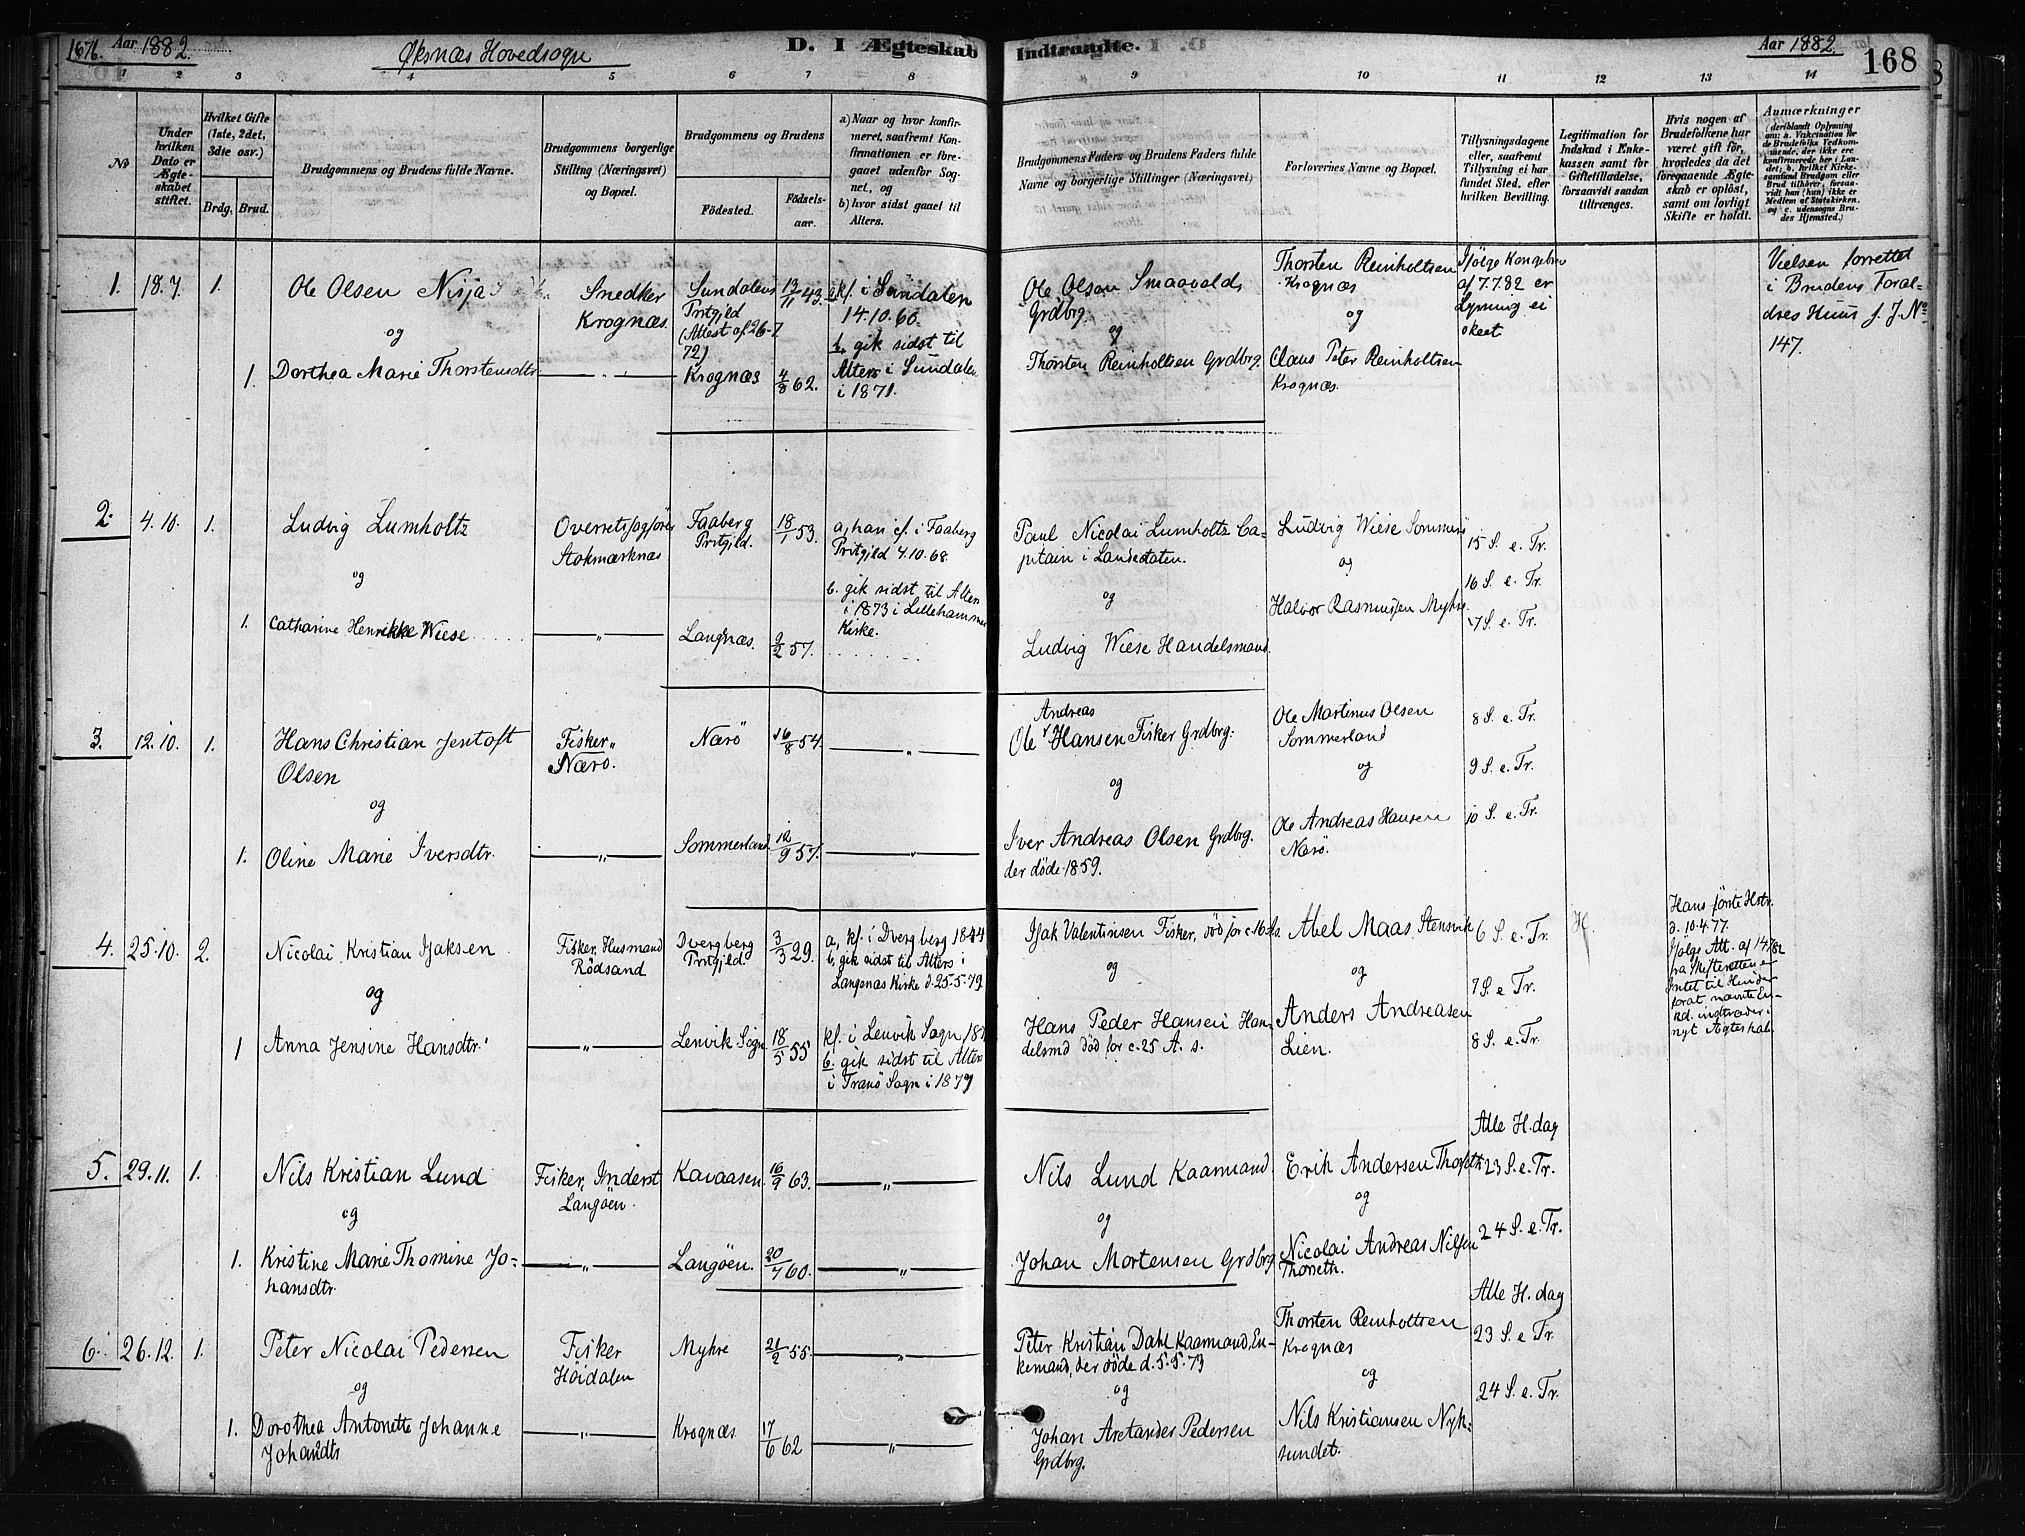 167b. Aar 1882.
Øksnæs Hovedsogn
D. I Ægteskab Indtraadte.
Aar 1882.
168
1 2 3 4 5 6 7 8 9 10 11 12 13 14
№
Under hvilken Dato er Ægteskabet stiftet.
Hvilket Gifte (1ste, 2det, 3die osv.)
Brdg. Brud.
Brudgommens og Brudens fulde Navne.
Brudgommens borgerlige Stilling (Næringsvei) og Bopæl.
Brudgommens og Brudens
Fødested.
Fødselsaar.
a) Naar og hvor konfirmeret, saafremt Konfirmationen er foregaaet udenfor Sognet, og
b) hvor sidst gaaet til Alters.
Brudgommens Faders og Brudens Faders fulde Navne og borgerlige Stillinger (Næringsvei)
Forlovernes Navne og Bopæl.
Tillysningsdagene eller, saafremt Tillysning ei har fundet Sted, efter hvilken Bevilling.
Legitimation for Indskud i Enkekassen samt for Giftetilladelse, forsaavidt saadan tiltrænges.
Hvis nogen af Brudefolkene har været gift før, hvorledes da det foregaaende Ægteskab er opløst, samt om lovligt Skifte er holdt.
Anmærkninger
(deriblandt Oplysning om: a. Vakcination for de Brudefolks Vedkommende, der ikke ere konfirmerede her i Landet; b. hvilket Kirkesamfund Brudgom eller Brud tilhører, forsaavidt han (hun) ikke er Medlem af Statskirken, og c. udensogns Brudes Hjemsted.)
1. 18.7. 1. Ole Olsen Nisja
og
1. Dorthea Marie Thorstensdtr
Snedker
Krognæs.
Sundalens
Prstgjld
(Attest af 26-7
72)
13/11 43.
Krognæs 4/8 62.
a. kf. i Sundalen
14.10.60.
b. gik sidst til
Alters i Sundalen
i 1871.
Ole Olsen Smaavold,
Grdbrg
og
Thorsten Reinholtsen Grdbrg.
Thorsten Reinholtsen
Krognæs
og
Claus Peter Reinholtsen
Krognæs.
Ifølge Kongebrev
af 7.7.82 er
Lysning ei
skeet
Vielsen forrettet
i Brudens Forældres Huus f. J. No
147.
2. 4.10. 1. Ludvig Lumholtz
og
1. Catharine Henrikke Wiese
Overretssagfører
Stokmærknæs
Faaberg
Prstgjld.
18/1 53.
Langnæs. 9/2 57.
a, han cf. i Faaberg
Prstgjld 4.10.68.
b. gik sidst til Alters
i 1873 i Lillehammer
Kirke.
Paul Nicolai Lumholtz Captain i Landetaten.
og
Ludvig Wiese Handelsmand.
Ludvig Wiese Sommerö
og
Halvor Rasmussen Myhre
15 S. e. Tr.
16 S. e. Tr.
17 S. e. Tr.
3. 12.10. 1. Hans Christian Jentoft
Olsen
og
1. Oline Marie Iversdtr.
Fisker
Nærö.
Nærö 16/8 54.
Sommerland 12/9 57.
Andreas
Ole Hansen Fisker Grdbrg.
og
Iver Andreas Olsen Grdbrg.
der døde 1859.
Ole Martinus Olsen
Sommerland
og
Ole Andreas Hansen
Nærö.
8 S. e. Tr.
9 S. e. Tr.
10 S. e. Tr.
4. 25.10. 2. Nicolai Kristian Isaksen
og
1 Anna Jensine Hansdtr.
Fisker, Husmand
Rödsand
Dvergberg
Prstgjld.
3/3 29.
Lenvik Sogn. 18/5 55
a, kf. i Dvergberg 1844
b, gik sidst til Alters i
Langenæs Kirke d. 25-5-79
kf. i Lenvik Sogn
b. gik sidst til Alters
i Tranö Sogn i 1879
Isak Valentinsen Fisker, død for c. 16
og
Hans Peder Hansen Handelsmd død for c. 25 A. s.
Abel Maas Stensvik
og
Anders Andreasen
Lien.
6 S. e. Tr.
7 S. e Tr.
8 S. e. Tr.
Hans første Hstr.
d. 10.4.77.
Ifølge Att. af
fra Skifteretten er
Intet til Hinder
forat nævnte Enkd. indtræder i
nyt Ægteskab.
5. 29.11. 1. Nils Kristian Lund
og
1. Kristine Marie Thomine Johansdtr.
Fisker, Inderst
Langöen.
Kavaasen. 16/9 63.
Langöen. 20/7 60.
Nils Lund Kaarmand
og
Johan Mortensen Grdbrg
Erik Andersen
og
Nicolai Andreas Nilsen
Alle H. dag
23 S. e. Tr.
24 S. e. Tr.
6. 26.12. 1. Peter Nicolai Pedersen
og
1. Dorothea Antonette Johanne
Johandtr
Fisker
Höidalen
Myhre 21/2 55.
Krognæs 17/6 62
Peter Kristian Dahl Kaarmand, Enkemand, der døde d. 5.5.73
og
Johan Aretander Pedersen
Grdbrg.
Thorsten Reinholtsen
Krognæs
og
Nils Kristiansen Nyksundet.
Alle H. dag
23 S. e Tr.
24 S. e. Tr.